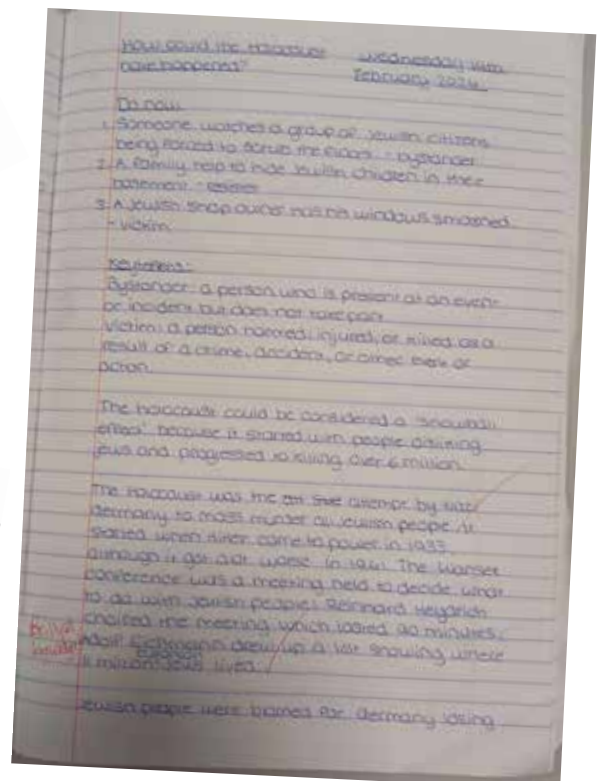 How could the Holocaust
have happened?
Wednesday 14th
February 2024
Do now
1. Someone watches a group of Jewish citizens
being forced to scrub the floors. - bystander
2. A family help to hide Jewish children in their
basement. - resister
3. A Jewish shop owner has his windows smashed
- victim
Keyterms:
Bystander: a person who is present at an event
or incident but does not take part
Victim: a person harmed, injured, or killed as a
result of a crime, accident, or other event or
action.
The Holocaust could be considered a 'snowball
effect' because it started with people
Jews and progressed to killing over 6 million.
The Holocaust was the attempt by Nazi
Germany to mass murder all Jewish people. It
started when Hitler came to power in 1933
although it got alot worse in 1941. The Wansee
conference was a meeting held to decide what
to do with Jewish people. Reinhard Heydrich
chaired the meeting which lasted 90 minutes.
Adolf Eichmann drew up a list showing where
11 million Jews lived.
Jewish people were blamed for Germany losing